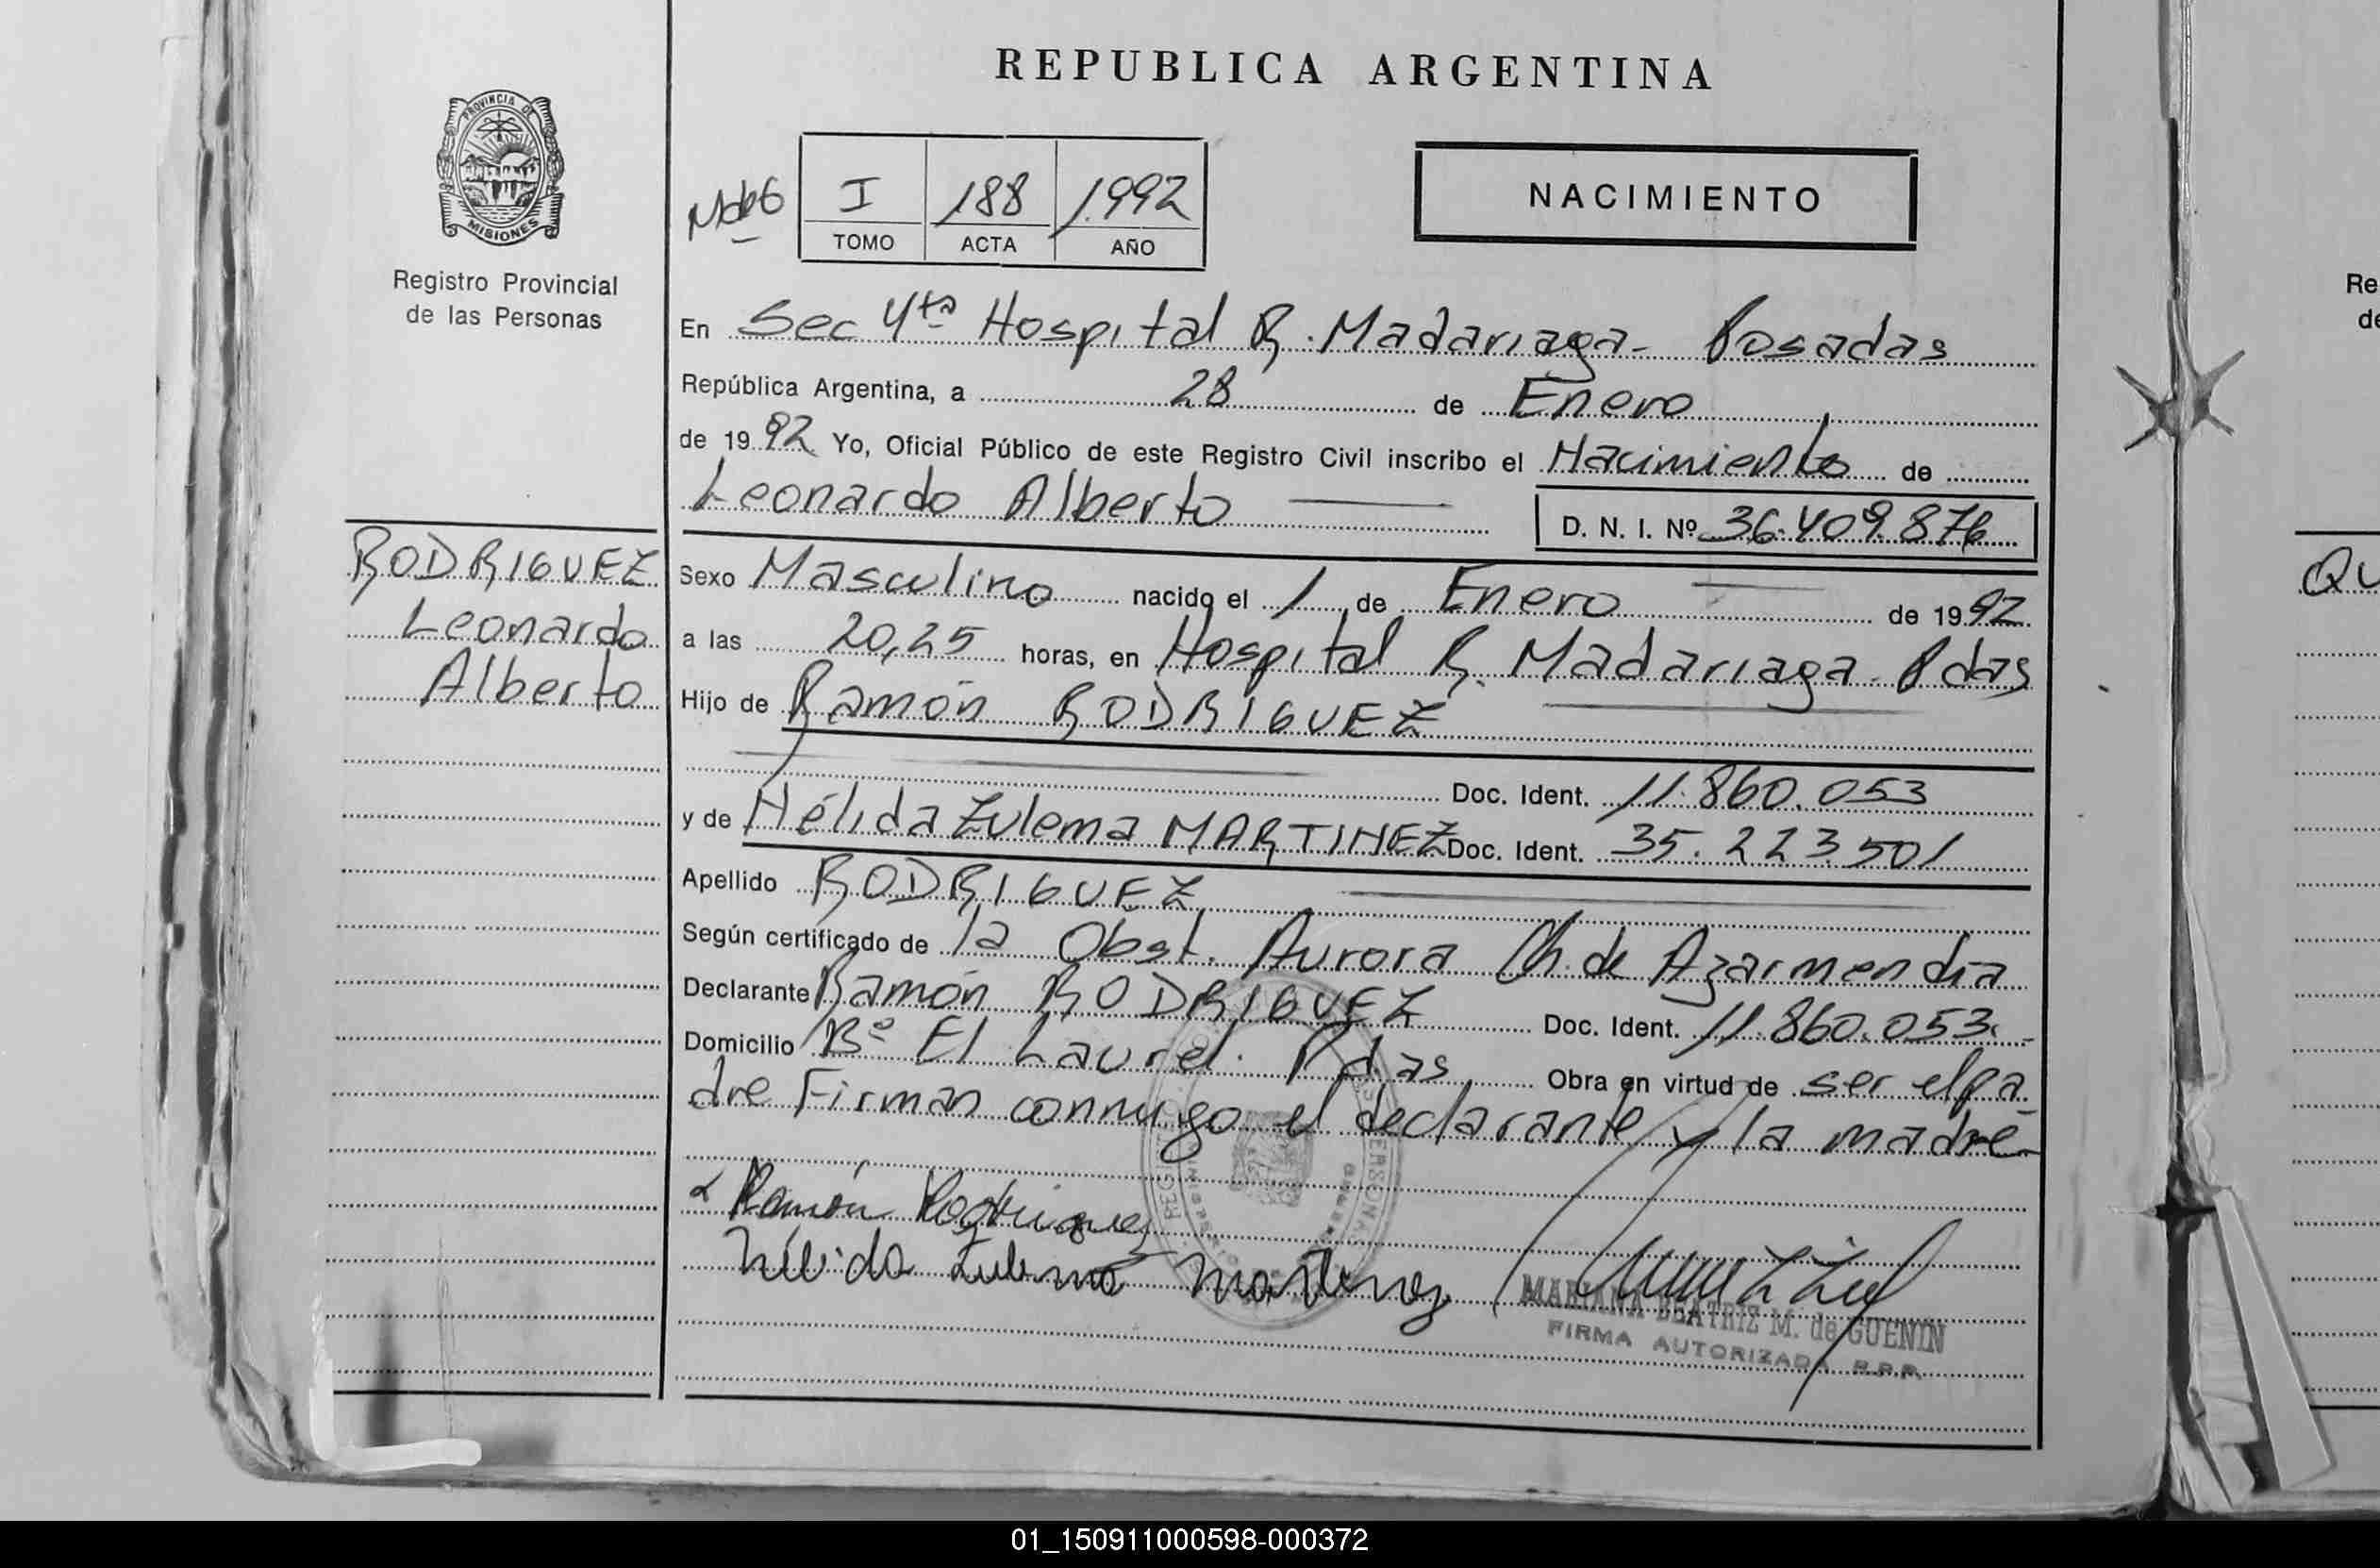 REPUBLICA ARGENTINA
PROVINCIA DE
MISIONES
Registro Provincial
de las Personas
I 188 1992
TOMO ACTA AÑO
NACIMIENTO
En Sec 4ta Hospital R. Madariaga - Posadas
República Argentina, a 28 de Enero
de 1992 Yo, Oficial Público de este Registro Civil inscribo el Nacimiento de
Leonardo Alberto
D. N. I. Nº 36.409.876
RODRIGUEZ
Leonardo
Alberto
Sexo Masculino nacido el 1 de Enero de 1992
a las 20,25 horas, en Hospital R. Madariaga - Pdas
Hijo de Ramón RODRIGUEZ
Doc. Ident. 11.860.053
y de Nélida Zulema MARTINEZ Doc. Ident. 35.223.501
Apellido RODRIGUEZ
Según certificado de la Obst. Aurora Ch. de Azarmendia
Declarante Ramón RODRIGUEZ Doc. Ident. 11.860.053.
Domicilio Bº El Laurel. Pdas Obra en virtud de ser el pa
dre Firman conmigo el declarante y la madre
Ramón Rodriguez
Nélida Zulema Martinez
MARIANA BEATRIZ M. de GUENIN
FIRMA AUTORIZADA R.P.P.
Re
de
QU
01_150911000598-000372